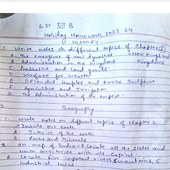 S.St. VII B
Holiday Home work 2023-24
History
1. Write notes on different topics of Chapter
A. The emergence of New Dynasties
B. Administration in the Kingdoms
C. Prashastis and land grants
D. Warfare for wealth
E. Temples and Bronze Sculpture
F. Agriculture and Irrigation
G. The administration of the empire
Geography
1. Write notes on different topics of Chapter 2
A. Inside our earth
B. Interior of the earth
C. Rocks and Minerals
2. On map of India Locate all the states and
union territories with its capital
3. Locate five important rivers, mountains,
Industrial